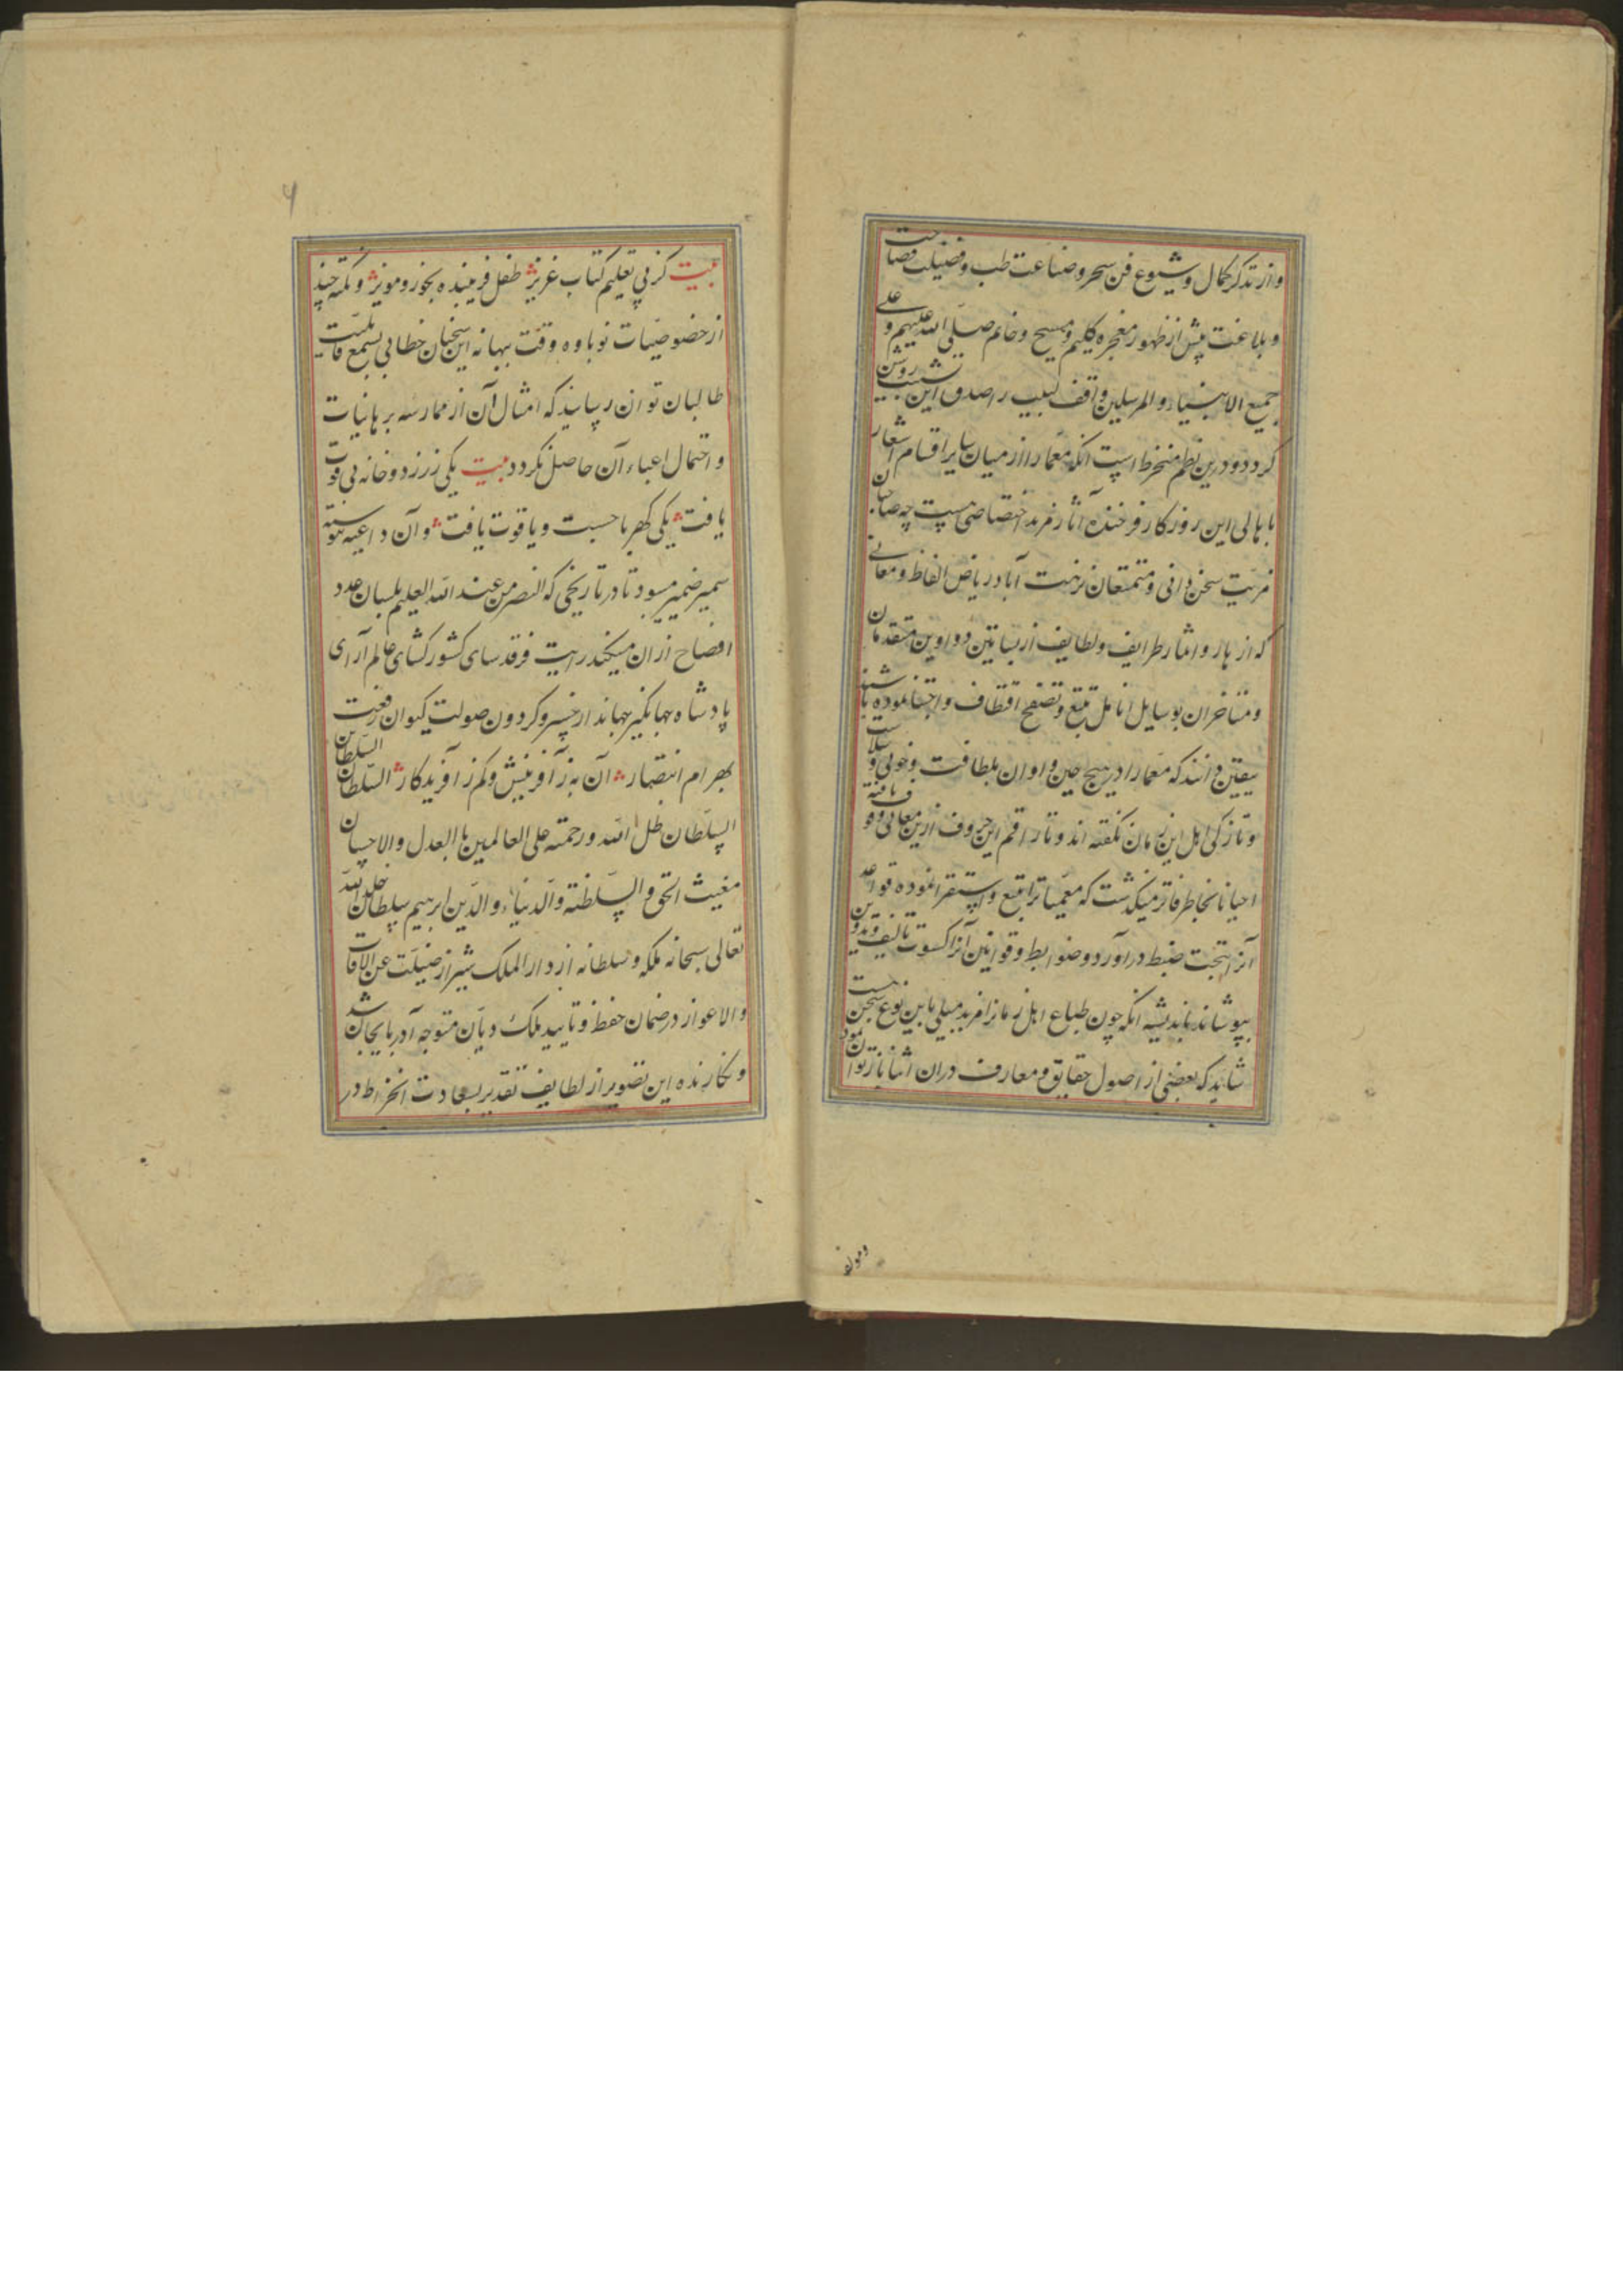 واز تذکر کمال وشیوع فن سحر وصناعت طب وفضیلت فصاحت
وبلاغت پیش از ظهور معجزه کلیم ومسیح وخاتم صلی الله علیهم وعلی
جمیع الانبیاء والمرسلین واقف لبیب را صدق این تشبیب روشن
کردد ودرین نظم منخرط است انکه معما را از میان سایر اقسام اشعار
باهالی این روزکار فرخنده آثار مزید اختصاصی هست چه صاحبان
مزیت سخن دانی ومتمتعان نزهت آباد ریاض الفاظ ومعانی
که از هار واثمار طرایف ولطایف از بساتین دواوین متقدمان
ومتاخران بوسایل انامل تتبع وتصفح اقتطاف واجتنا نموده باشند
بیقین دانند که معما را در هیچ حین واوان بلطافت وخوبی وسلاست
وتازکی اهل این زمان نکفته اند وتا راقم این حروف ازین معانی وقوف یافته
احیانا بخاطر فاتر میکذشت که معمیات را تتبع واستقرا نموده قواعد
آنرا تحت ضبط در آورد وضوابط وقوانین آنرا کسوت تالیف وتدوین
بپوشاند باندیشه انکه چون طباع اهل زمانرا مزید میلی باین نوع سخن هست
شاید که بعضی از اصول حقایق ومعارف دران اثنا باز توان نمود
۶
بیت کز پی تعلیم کتاب عزیز طفل فریبنده بجوز ومویز ونکته چند
از خصوصیات نوباوه وقت ببهانه این سخنان خطابی بسمع قابلیت
طالبان توان رسانید که امثال آن از ممارسه برهانیات
واحتمال اعباء آن حاصل نکردد بیت یکی زر زد وخانه بی قوت
یافت یکی کهربا جست ویاقوت یافت وآن داعیه پیوسته
سمیر ضمیر میبود تا در تاریخی که النصر من عند الله العلیم بلسان عدد
افصاح از ان میکند رایت فرقد سای کشور کشای عالم آرای
پادشاه جهانکیر جهاندار خسرو کردون صولت کیوان رفعت
بهرام انتصار آن به ز آفرینش وکم ز آفریدکار السلطان السلطان بن
السلطان ظل الله ورحمته علی العالمین بالعدل والاحسان
مغیث الحق والسلطنة والدنیا والدین ابرهیم سلطان خلد الله
تعالی سبحانه ملکه وسلطانه از دار الملک شیراز صینت عن الافات
والاعواز در ضمان حفظ وتایید ملک دیان متوجه آدربایجان شد
ونکارنده این تصویر از لطایف تقدیر بسعادت انخراط در